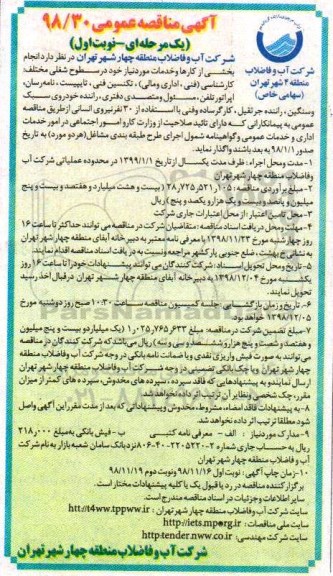 آگهی مناقصه عمومی ۹۸/۳۰
(یک مرحله‌ای-نوبت اول)
شرکت آب و فاضلاب
منطقه ۴ شهر تهران
(سهامی خاص)
شرکت آب و فاضلاب منطقه چهار شهر تهران در نظر دارد انجام
بخشی از کارها و خدمات مورد نیاز خود در سطوح شغلی مختلف:
کارشناسی (فنی، اداری و مالی)، تکنسین فنی، تایپیست، نامه‌رسان،
اپراتور تلفن، مسئول و متصدی دفتری، راننده خودروی سبک،
سنگین، راننده جرثقیل، کارگر ساده و فنی با استفاده از ۲۰ نفر نیروی انسانی از طریق مناقصه
عمومی به پیمانکارانی که دارای تائید صلاحیت از وزارت کار و امور اجتماعی در امور خدمات
اداری و خدمات عمومی و گواهینامه شمول اجرای طرح طبقه بندی مشاغل (هر دو مورد) به تاریخ
صدور ۹۸/۱/۱ به بعد باشند واگذار نماید.
۱-مدت و محل اجراء: ظرف مدت یکسال از تاریخ ۱۳۹۹/۱/۱ در محدوده عملیاتی شرکت آب
وفاضلاب منطقه چهار شهر تهران
۲-مبلغ برآوردی مناقصه: ۲۸٫۷۲۵٫۵۲۱٫۱۰۵ (بیست و هشت میلیارد و هفتصد و بیست و پنج
میلیون و پانصد و بیست و یک هزار و یکصد و پنج) ریال
۳-محل تامین اعتبار: از محل اعتبارات جاری شرکت
۴-مهلت و محل دریافت اسناد مناقصه: متقاضیان شرکت در مناقصه می توانند حداکثر تا ساعت ۱۶
روز چهارشنبه مورخ ۱۳۹۸/۱۱/۲۳ با معرفی نامه معتبر به دبیرخانه آبفای منطقه چهار شهر تهران
به نشانی پنج بهشت، ضلع جنوبی پارکشهر مراجعه و نسبت به دریافت اسناد مناقصه اقدام نمایند.
۵-تاریخ و محل تحویل اسناد: شرکت کنندگان می توانند پیشنهادات خود را تا ساعت ۱۶ روز
یکشنبه مورخ ۱۳۹۸/۱۲/۰۴ به دبیرخانه آبفای منطقه چهار شهر تهران در قبال اخذ رسید
تحویل نمایند.
۶-تاریخ و زمان بازگشایی: جلسه کمیسیون مناقصه ساعت ۱۰:۳۰ صبح روز دوشنبه مورخ
۱۳۹۸/۱۲/۰۵ خواهد بود.
۷-مبلغ تضمین شرکت در مناقصه: مبلغ ۱٫۰۲۵٫۷۶۵٫۶۳۳ (یک میلیارد و بیست و پنج میلیون
و هفتصد و شصت و پنج هزار و ششصد و سی و سه) ریال می باشد که شرکت کنندگان در مناقصه
می توانند به صورت فیش واریزی نقدی و یا ضمانت نامه بانکی در وجه شرکت آب و فاضلاب منطقه
چهار شهر تهران و یا چک بانکی تضمینی در وجه شرکت آب و فاضلاب منطقه چهار شهر تهران
ارسال نمایند و به پیشنهادهایی که فاقد سپرده، سپرده های مخدوش، سپرده های کمتر از میزان
مقرر، چک شخصی و نظایر آن ترتیب اثر داده نخواهد شد.
۸-به پیشنهادات فاقد امضاء، مشروط، مخدوش و پیشنهاداتی که بعد از مدت مقرر این آگهی واصل
شود مطلقا ترتیب اثر داده نخواهد شد.
۹-مدارک مورد نیاز: الف- معرفی نامه کتبی ب- فیش بانکی به مبلغ ۲۱۸٫۰۰۰
ریال به حساب جاری شماره ۲-۲۲۰۵۲۲۰-۴۰-۸۰۶ نزد بانک سامان شعبه بازار به نام شرکت
آب و فاضلاب منطقه چهار شهر تهران
۱۰-زمان چاپ آگهی: نوبت اول ۹۸/۱۱/۱۶ و نوبت دوم ۹۸/۱۱/۱۹
برگزارکننده مناقصه در رد یا قبول یک یا کلیه پیشنهادات مختار است.
سایر اطلاعات و جزئیات در اسناد مناقصه مندرج است.
سایت شرکت آب و فاضلاب منطقه چهار شهر تهران: htt://t4ww.tppww.ir
سایت ملی مناقصات: http://iets.mporg.ir
سایت شرکت مهندسی: http:tender.nww.co.ir
شرکت آب و فاضلاب منطقه چهار شهر تهران